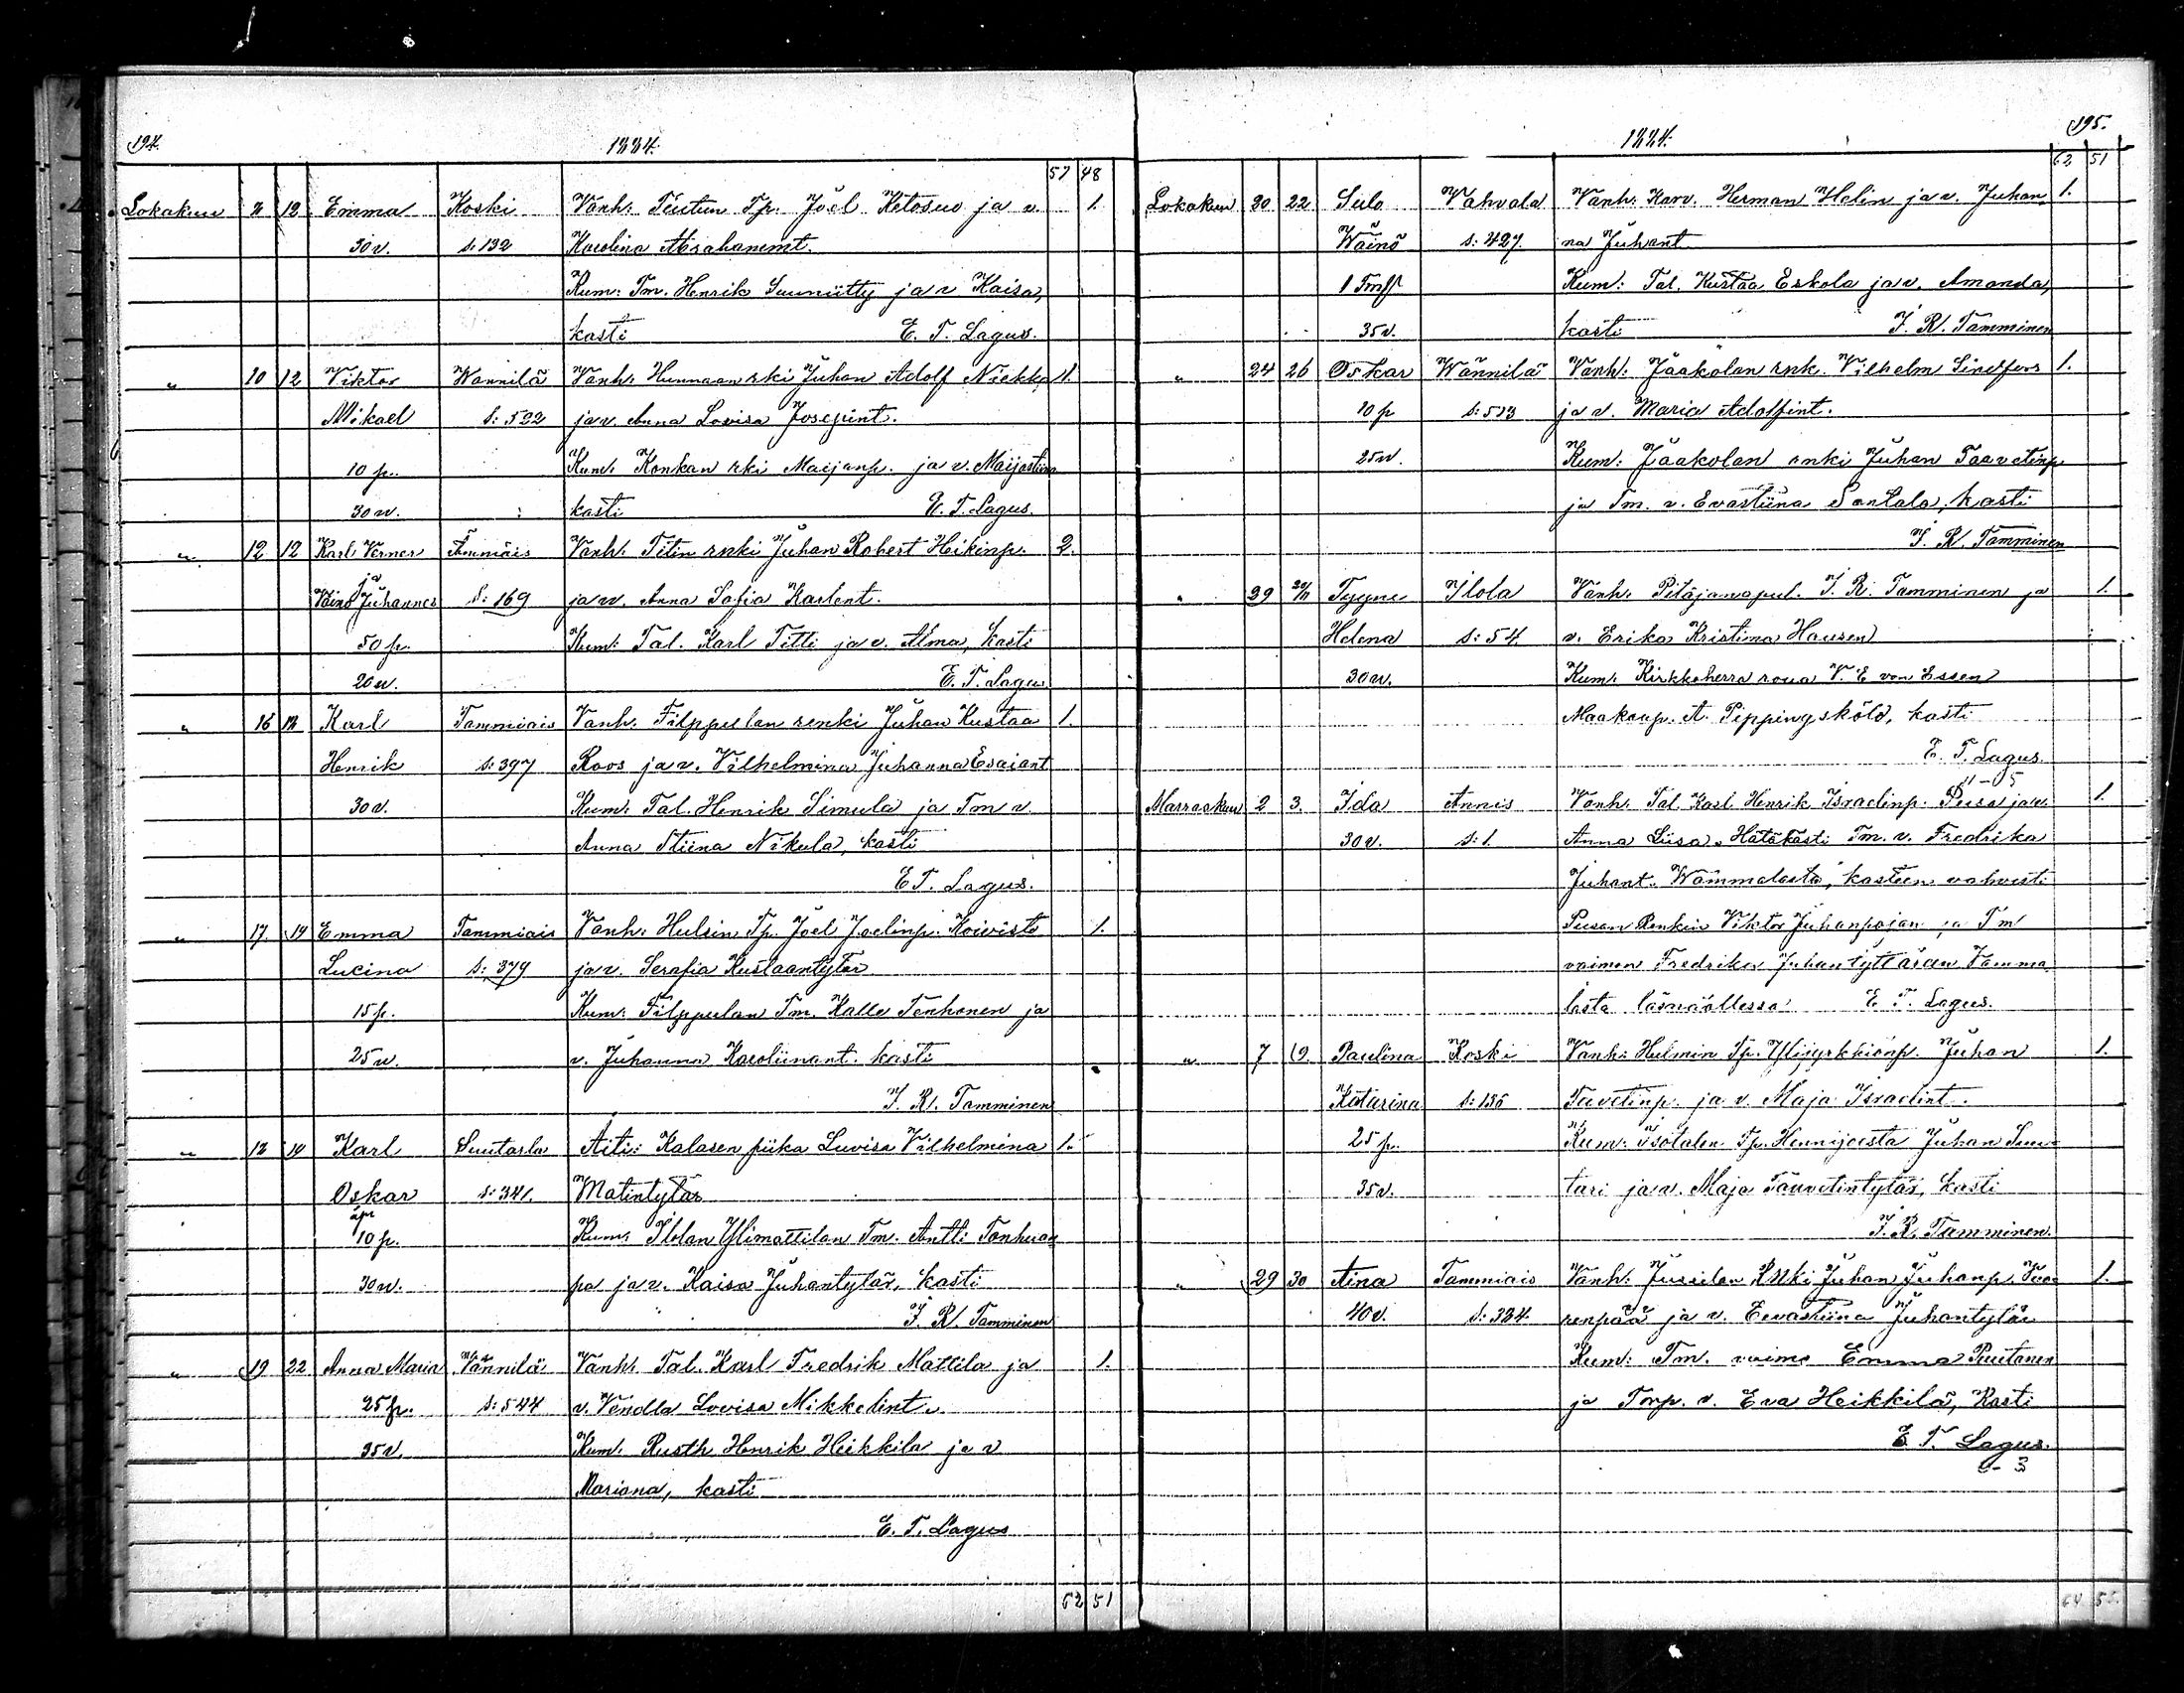 194. 1884.
57 48
Lokakuu 8 12 Emma Koski Vanh: Tp. Joel Ketosuo ja v. 1.
30 v. s: 132 Karolina Abrahamint.
Kum: Tm. Henrik Suuniitty ja v Kaisa,
kasti E. T. Lagus.
" 10 12 Viktor Wannilä Vanh: rki Juhan Adolf 1.
Mikael S: 522 ja v. Anna Lovisa Josepint.
10 p. Kum: Konkan rki Maijanp. ja v. Maijastiina
30 v. kasti E. T. Lagus.
" 12 12 Karl Verner Tammiais Vanh: Titin rnki Juhan Robert Heikinp. 2.
ja
Väinö Juhannes S: 169 ja v. Anna Sofia Karlent.
50 p. Kum: Tal. Karl Titti ja v. Alma, kasti
20 v. E. T. Lagus
" 16 18 Karl Tammiais Vanh: Filppulan renki Juhan Kustaa 1.
Henrik s: 397 Roos ja v. Vilhelmina Juhanna Esaiant
30 v. Kum: Tal. Henrik Simula ja Tm v.
Anna Stiina Nikula, kasti
E T. Lagus.
" 17 19 Emma Tammiais Vanh: Hulsin Tp. Joel Joelinp. Koivisto 1.
Lucina s: 379 ja v. Serafia Kustaantytär
15 p. Kum: Filppulan Tm. Kalle Tenhonen ja
25 v. v. Juhanna Karoliinant. kasti
J. R. Tamminen
" 18 19 Karl Suutarla Äiti: Kalasen piika Luvisa Vilhelmina 1.
Oskar s: 341. Matintytär
äpr
10 p. Kum: Ilolan Ylimattilan Tm. Antti Tanhuan
30 v. pa ja v. Kaisa Juhantytär, kasti
J. R. Tamminen
" 19 22 Anna Maria Vännilä Vanh: Tal. Karl Fredrik Mattila ja 1.
25 p. s: 544 v. Vendla Lovisa Mikkelint.
35 v Kum: Rusth. Henrik Heikkila ja v
Mariana, kasti
E. T. Lagus
62 51
1884. 195.
62 51
Lokakuu 20 22. Sulo Vahvala Vanh: Karv. Herman Helin ja v. Juhan 1.
Wäinö s: 427 na Juhant
1 Tmp Kum: Tal. Kustaa Eskola ja v. Amanda,
35 v. kasti J. R. Tamminen
" 24 26 Oskar Wännilä Vanh: Jaakolan rnk. Vilhelm Lindfors 1.
10 p s: 513 ja v. Maria Adolfint.
25 v. Kum: Jaakolan rnki Juhan Taavetinp
ja Tm. v. Evastiina Santala, kasti
J. R. Tamminen
" 29 30/11 Tyyne Ilola Vanh: Pitäjänapul. J. R. Tamminen ja 1.
Helena s: 54 v. Erika Kristina Hausen
30 v. Kum: Kirkkoherra roua V. E von Essen
Maakaup. A. Pippingsköld, kasti
E. T. Lagus.
11-5
Marraskuu 2 3. Ida Annis Vanh. Tal Karl Henrik Israelinp. Pusa ja v. 1.
30 v. s: 1. Anna Liisa. Hätäkasti Tm. v. Fredrika
Juhant. Wammalasta, kasteen vahvisti
Pusan Renkin Viktor Juhanpojan ja Tm
vaimon Fredrika Juhantyttären Vamma
lasta läsnäollessa E. T. Lagus.
" 7 9. Paulina Koski Vanh: Hulmin Tp. Juhan 1.
Katarina s: 135 Tavetinp. ja v. Maja Israelint.
25 p. Kum: Isotalon Tp. Juhan Suu-
35 v. tari ja v. Maja Taavetintytär, kasti
J. R. Tamminen.
" 29 30 Aina Tammiais Vanh: Jussilan Rnki Juhan Juhanp. Vuo- 1.
40 v. s: 384. renpää ja v. Eevastiina Juhantytär
Kum: Tm. vaimo Emma Puutanen
ja Torp. v. Eva Heikkilä, Kasti
E. T. Lagus.
2-3
64 55.